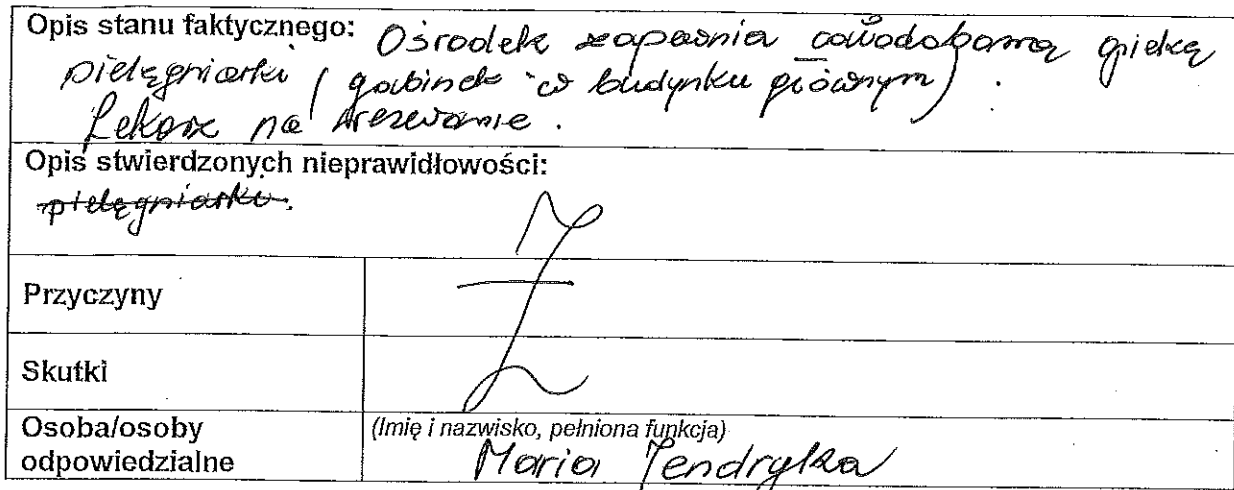 Opis stanu faktycznego: Ośrodek zapewnia całodobową opiekę
pielęgniarki (gabinet w budynku głównym).
Lekarz na wezwanie.
Opis stwierdzonych nieprawidłowości:
pielęgniarki.
Przyczyny
Skutki
Osoba/osoby odpowiedzialne
(Imię i nazwisko, pełniona funkcja)
Maria Jendryka